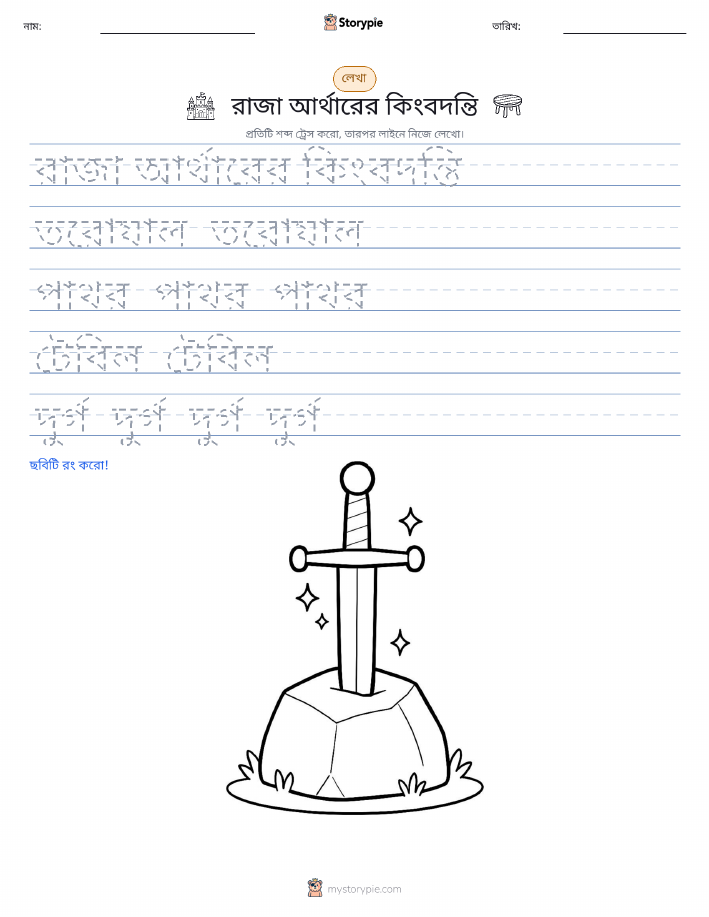 নাম:
Storypie
তারিখ:
লেখা
রাজা আর্থারের কিংবদন্তি
প্রতিটি শব্দ ট্রেস করো, তারপর লাইনে নিজে লেখো।
রাজা আর্থারের কিংবদন্তি
তরোয়াল তরোয়াল
পাথর পাথর পাথর
টেবিল টেবিল
দুর্গ দুর্গ দুর্গ দুর্গ
ছবিটি রং করো!
mystorypie.com